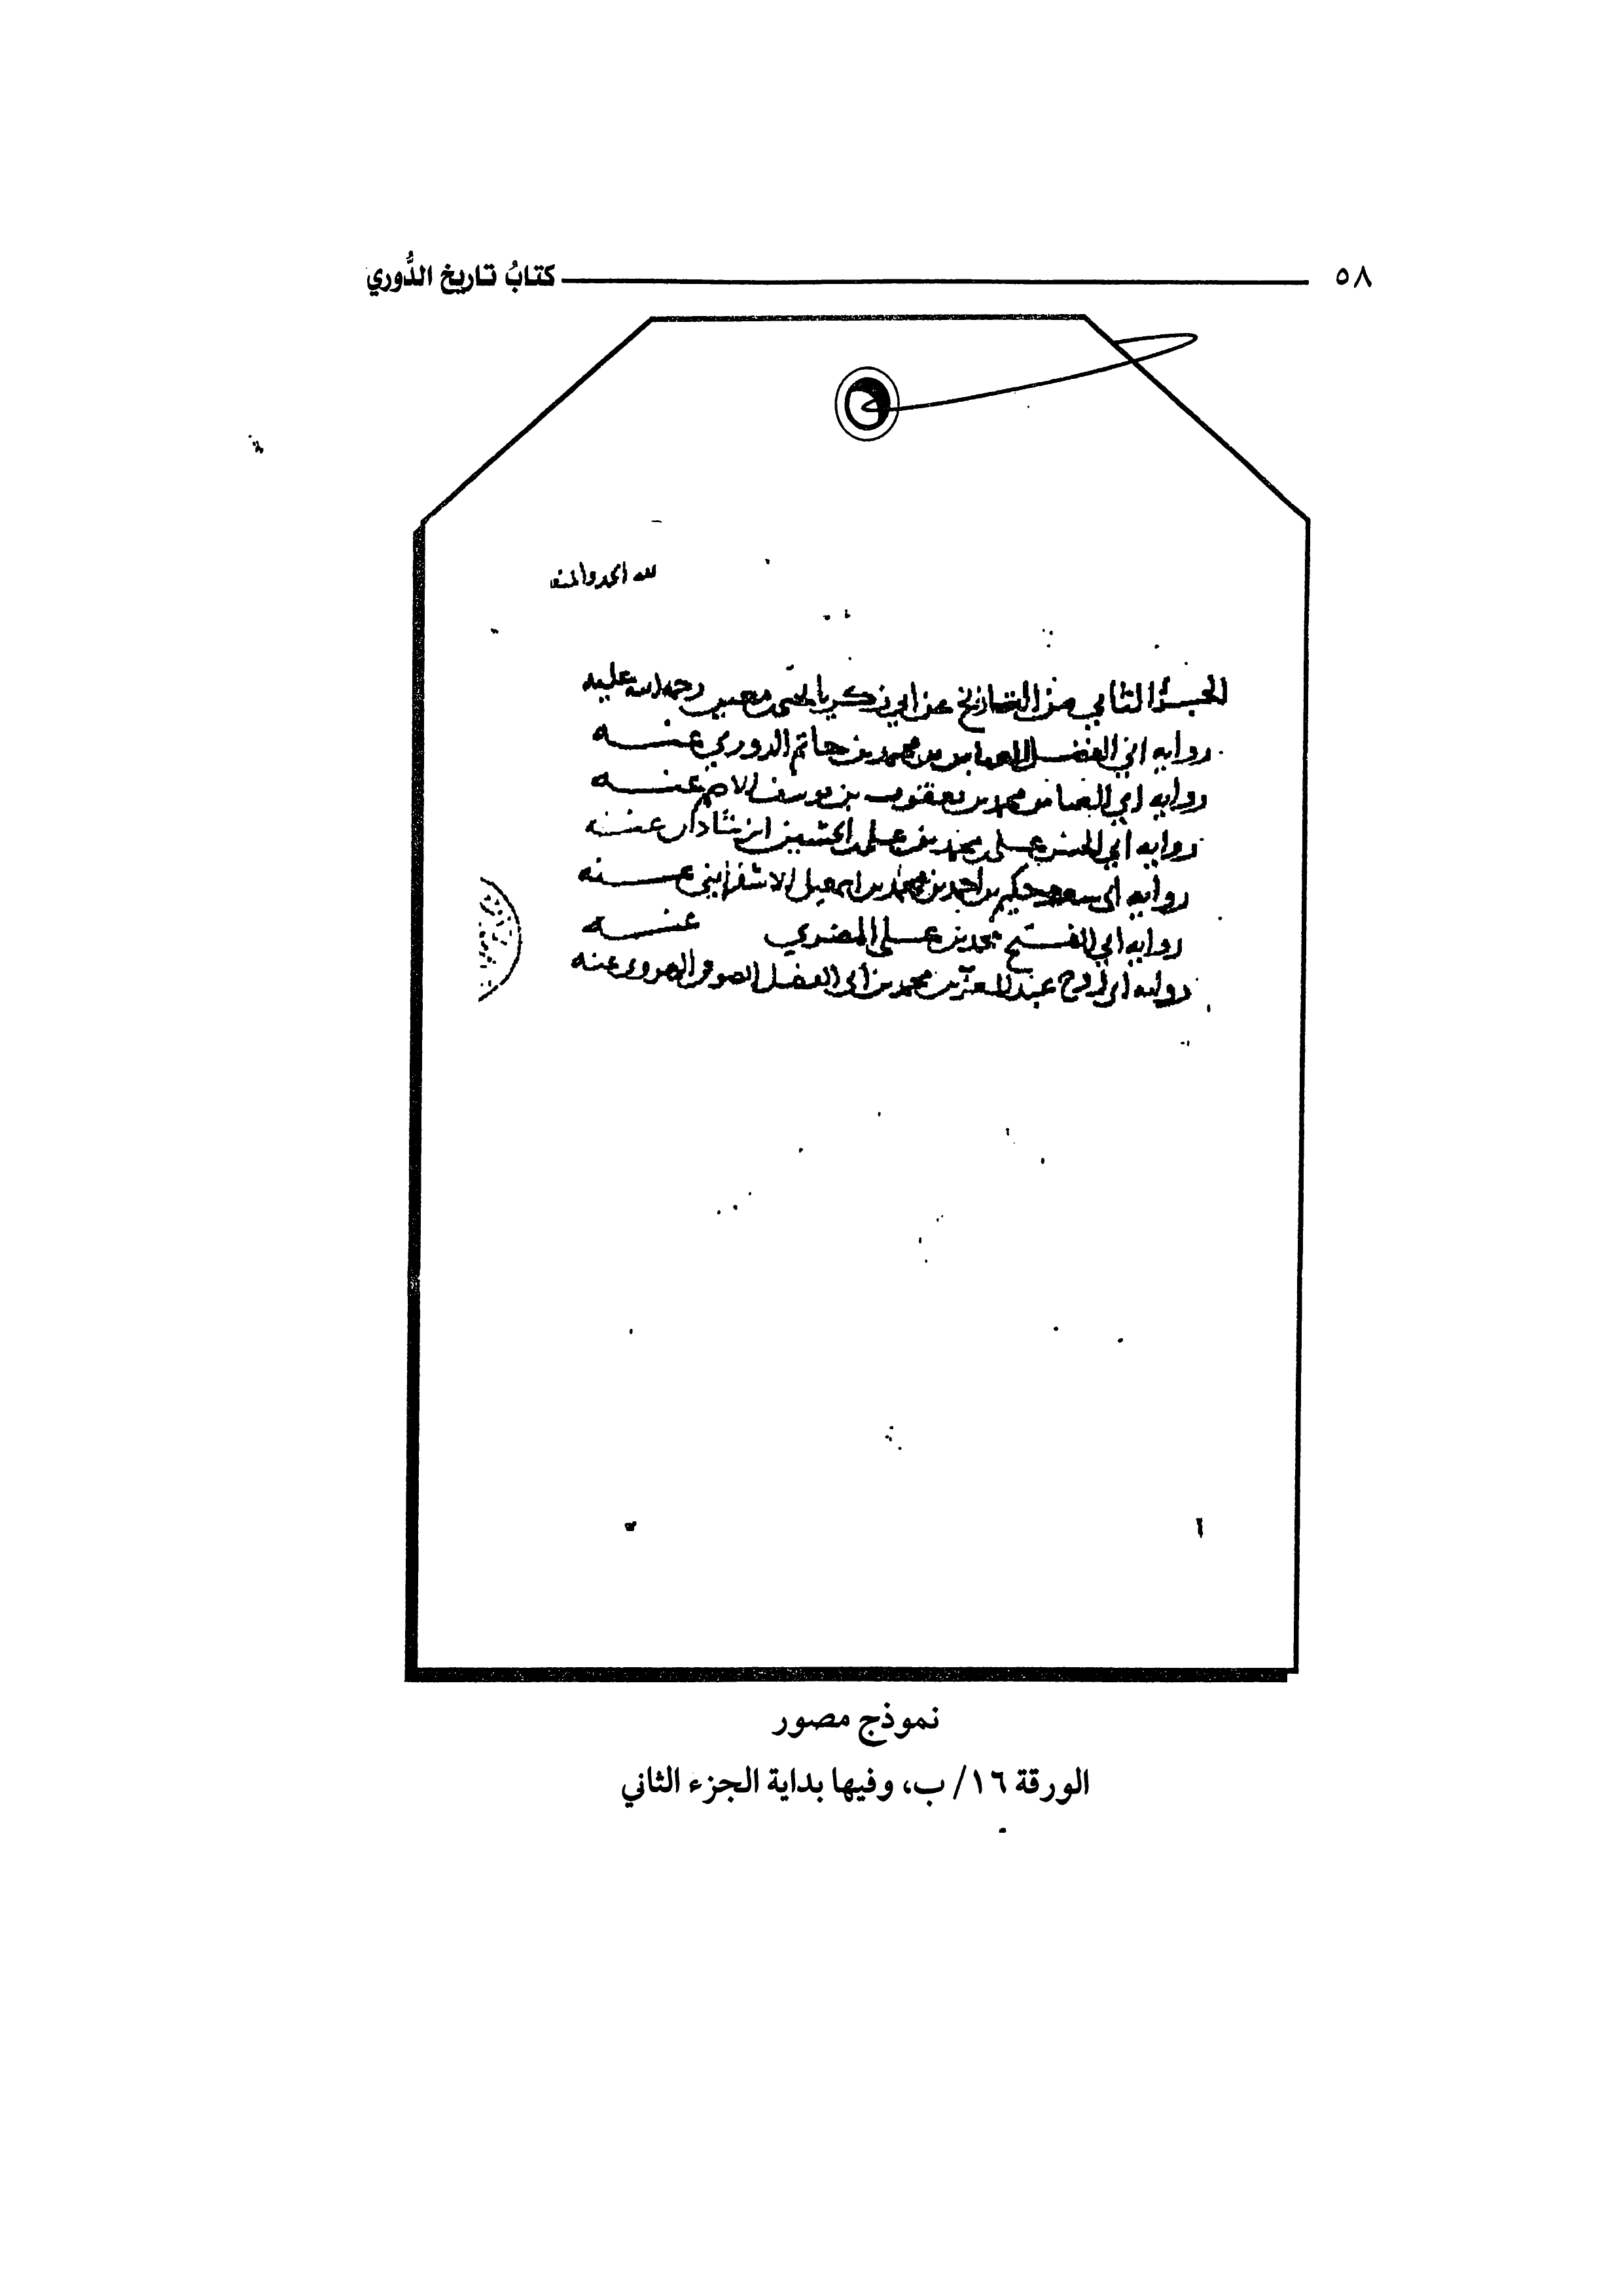 ٥٨ كتابُ تاريخ الدُّوري
لله الحمد والمنة
الجزؤ الثاني من التاريخ عن ابي زكريا يحيى بن معين رحمه الله عليه
روايه ابي الفضل العباس بن محمد بن حاتم الدوري عنه
روايه ابي العباس محمد بن يعقوب بن يوسف الاصم عنه
روايه ابي الحسن علي بن محمد بن علي بن الحسين ابن شاذان عنه
روايه ابي سعد حكيم بن احمد بن محمد بن اسمعيل الاسفرايني عنه
روايه ابي الفتح محمد بن علي المضري عنه
روايه ابي روح عبد المعز بن محمد بن ابي الفضل الصوفي الهروي عنه
نموذج مصور
الورقة ١٦/ ب، وفيها بداية الجزء الثاني